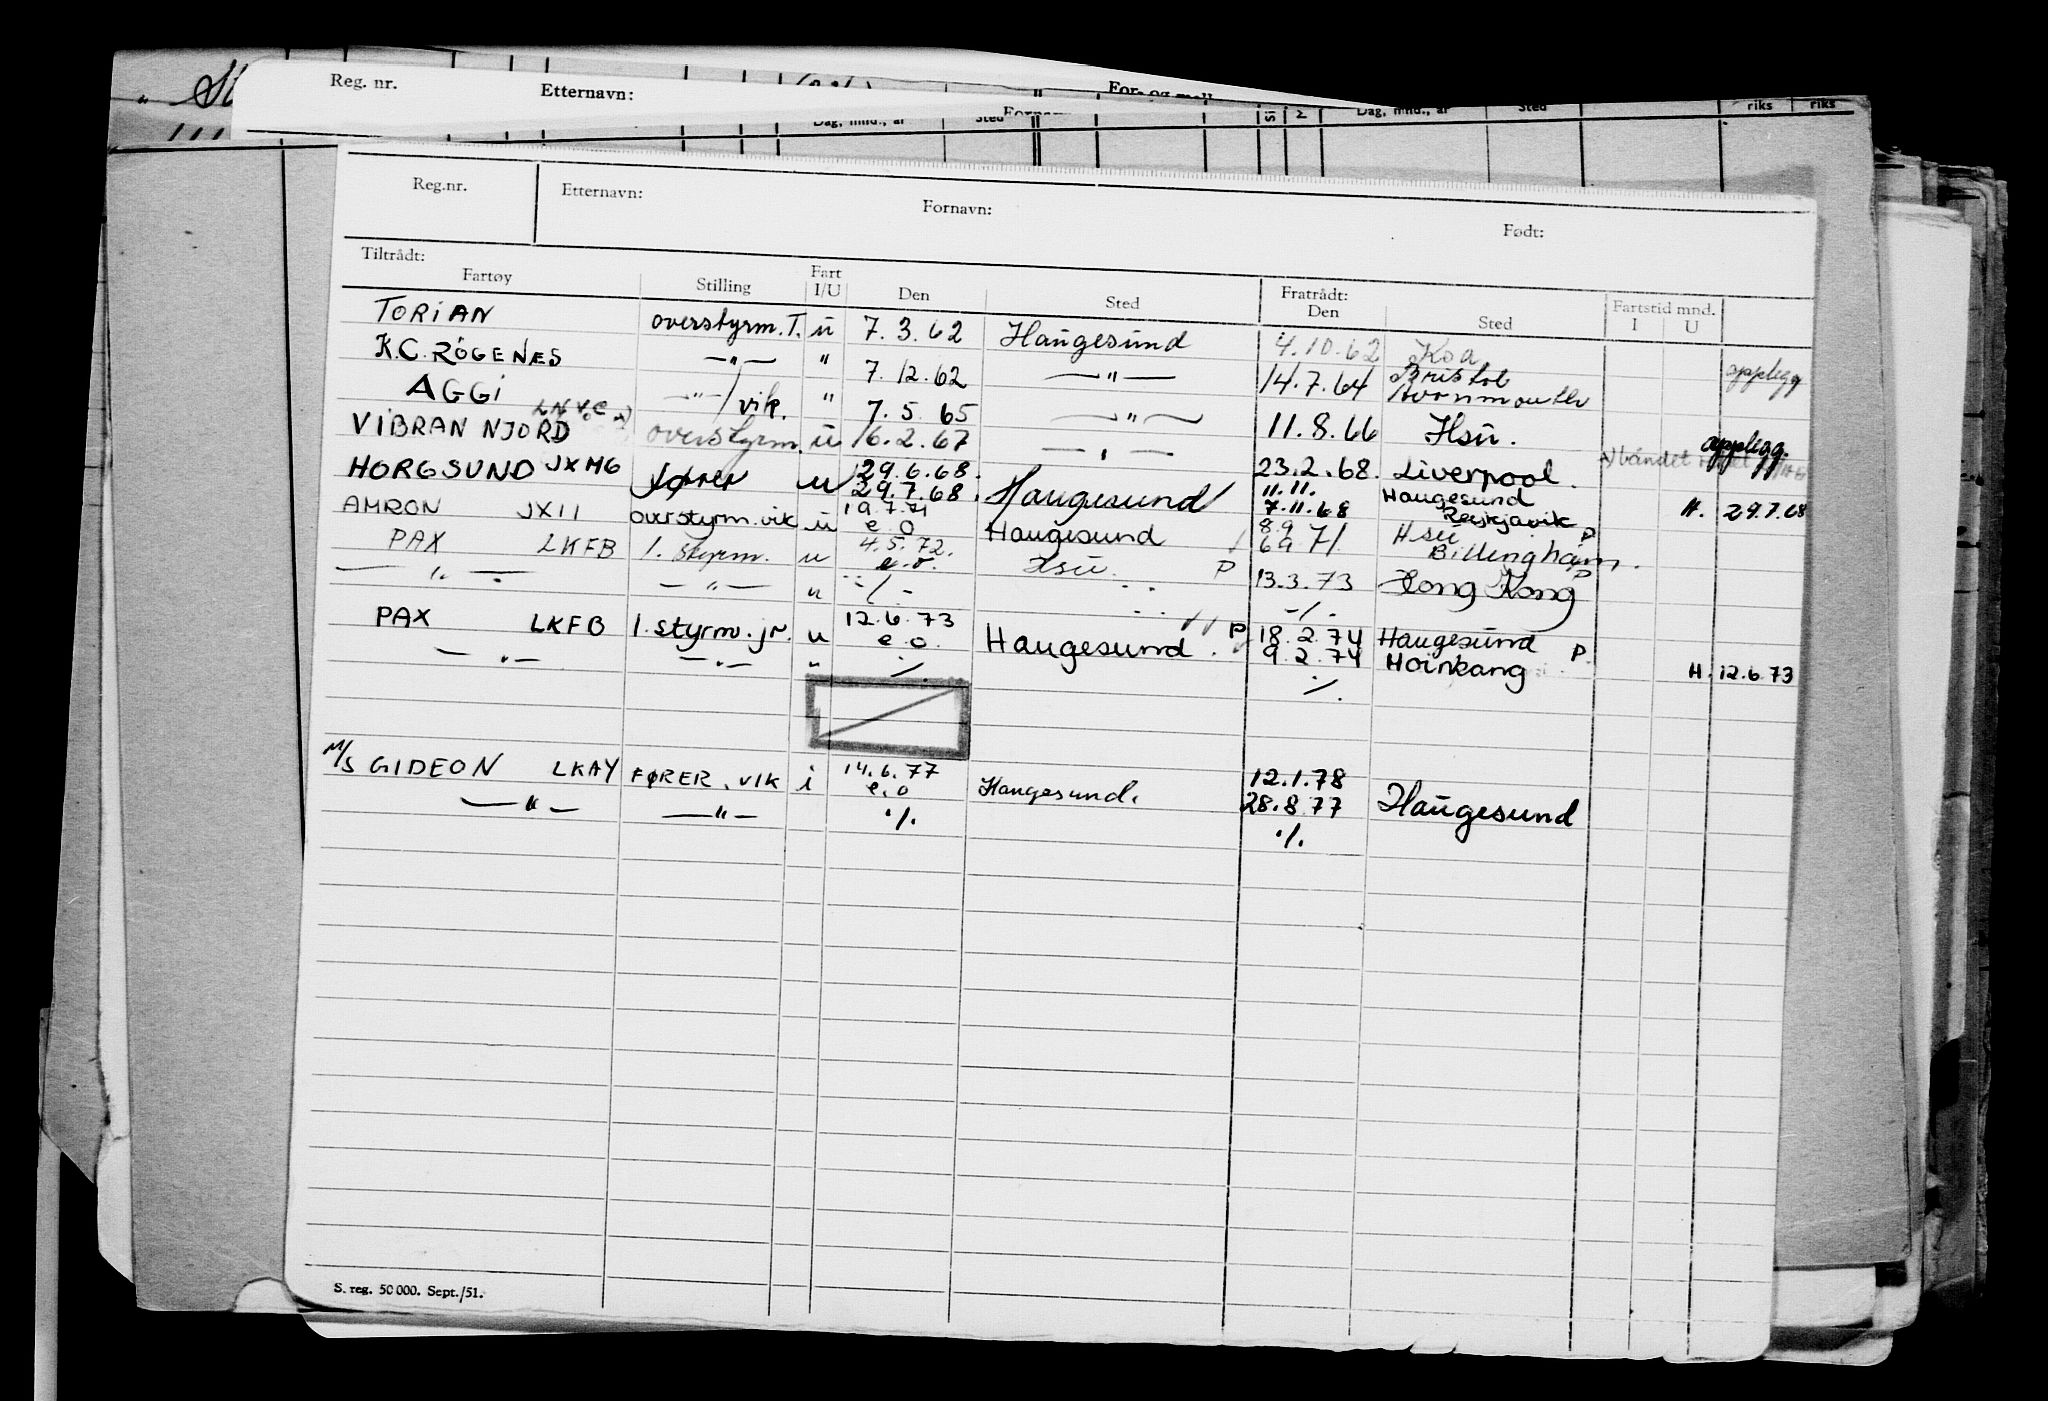 Reg. nr. Etternavn: For- og mell
Dag, mnd., år Sted Dag, mnd., år Sted riks riks
Reg.nr. Etternavn: Fornavn: Født:
Tiltrådt: Fratrådt: Fartstid mnd.
Fartøy Stilling Fart I/U Den Sted Den Sted I U
TORIAN overstyrm. T. u 7. 3. 62 Haugesund 4.10.62 Koa opplegg
K.C. RÖGENES —"— " 7. 12. 62 —"— 14.7.64 Bristol Avonmouth
AGGI —"—/vik. " 7. 5. 65 —"— 11.8.66 Hsu. opplegg.
VIBRAN NJORD overstyrm. u 16.2.67 —"— 23.2.68. Liverpool.
HORGSUND JXMG fører u 29.6.68. 29.7.68. Haugesund 11.11. 7.11.68 Haugesund Reikjavik H. 29.7.68
AMRON JXII overstyrm. vik u 19.7.71 e.o Haugesund 8.9 6.9 71. Hsu Billingham. P
PAX LKFB 1. styrm. u 4.5.72. e.o. Hsu. P 13.3.73 Hong Kong P
—"— —"— u -/- -/-
PAX LKFB 1. styrm. jr. u 12.6.73 e.o. Haugesund. P 18.2.74 9.2.74 Haugesund Hoinkang P H. 12.6.73
—"— —"— " ./. ./.
M/S GIDEON LKAY FØRER. VIK i 14.6.77 e.o Haugesund. 12.1.78 28.8.77 Haugesund
—"— —"— ./. ./.
S. reg. 50 000. Sept./51.